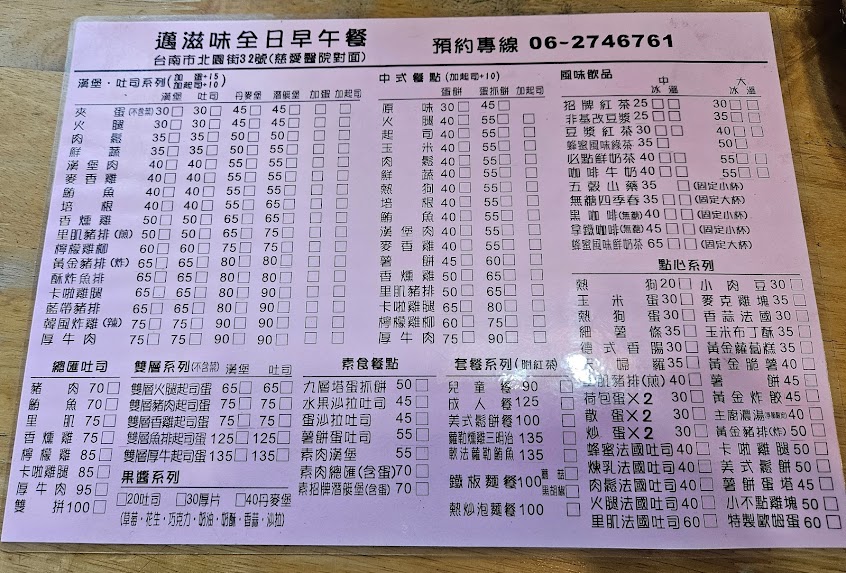 邁滋味全日早午餐 預約專線 06-2746761
台南市北園街32號(慈愛醫院對面)
漢堡·吐司系列(加蛋+15 加起司+10)
漢堡 吐司 丹麥堡 潛艇堡 加蛋 加起司
夾蛋(不含菜) 30□ 30□ 45□ 45□ □ □
火腿 30□ 30□ 45□ 45□ □ □
肉鬆 35□ 35□ 50□ 50□ □ □
鮮蔬 35□ 35□ 50□ 50□ □ □
漢堡肉 40□ 40□ 55□ 55□ □ □
麥香雞 40□ 40□ 55□ 55□ □ □
鮪魚 40□ 40□ 55□ 55□ □ □
培根 40□ 40□ 55□ 55□ □ □
香燻雞 50□ 50□ 65□ 65□ □ □
里肌豬排(煎) 50□ 50□ 65□ 65□ □ □
檸檬雞柳 60□ 60□ 75□ 75□ □ □
黃金豬排(炸) 65□ 65□ 80□ 80□ □ □
酥炸魚排 65□ 65□ 80□ 80□ □ □
卡啦雞腿 65□ 65□ 80□ 90□ □ □
藍帶豬排 65□ 65□ 80□ 80□ □ □
韓風炸雞(辣) 75□ 75□ 90□ 90□ □ □
厚牛肉 75□ 75□ 90□ 90□ □ □
中式餐點(加起司+10)
蛋餅 蛋抓餅 加起司
原味 30□ 45□
火腿 40□ 55□ □
起司 40□ 55□ □
玉米 40□ 55□ □
肉鬆 40□ 55□ □
鮮蔬 40□ 55□ □
熱狗 40□ 55□ □
培根 40□ 55□ □
鮪魚 40□ 55□ □
漢堡肉 40□ 55□ □
麥香雞 40□ 55□ □
薯餅 45□ 60□ □
香燻雞 50□ 65□ □
里肌豬排 50□ 65□ □
卡啦雞腿 65□ 80□ □
檸檬雞柳 60□ 75□ □
厚牛肉 75□ 90□ □
風味飲品 中 大
冰 溫 冰 溫
招牌紅茶 25□□ 30□□
非基改豆漿 25□□ 35□□
豆漿紅茶 30□□ 40□□
蜂蜜風味綠茶 35□ 50□
必點鮮奶茶 40□□ 55□□
咖啡牛奶 40□□ 55□□
五穀山藥 35□(固定小杯)
無糖四季春 35□(固定大杯)
黑咖啡(無糖) 40□□(固定小杯)
拿鐵咖啡(無糖) 45□□(固定小杯)
蜂蜜風味鮮奶茶 65□(固定大杯)
點心系列
熱狗 20□ 小肉豆 30□
玉米蛋 30□ 麥克雞塊 35□
熱狗蛋 30□ 香蒜法國 30□
細薯條 35□ 玉米布丁酥 35□
德式香腸 30□ 黃金蘿蔔糕 35□
35□ 黃金脆薯 40□
里肌豬排(煎) 40□ 薯餅 45□
荷包蛋×2 30□ 黃金炸餃 45□
散蛋×2 30□ 主廚濃湯 40□
炒蛋×2 30□ 黃金豬排(炸) 50□
蜂蜜法國吐司 40□ 卡啦雞腿 50□
煉乳法國吐司 40□ 美式鬆餅 50□
肉鬆法國吐司 40□ 薯餅蛋塔 45□
火腿法國吐司 40□ 小不點雞塊 50□
里肌法國吐司 60□ 特製歐姆蛋 60□
總匯吐司
豬肉 70□
鮪魚 70□
里肌 75□
香燻雞 75□
檸檬雞 85□
卡啦雞腿 85□
厚牛肉 95□
雙拼 100□
雙層系列(不含菜) 漢堡 吐司
雙層火腿起司蛋 65□ 65□
雙層豬肉起司蛋 75□ 75□
雙層香雞起司蛋 75□ 75□
雙層魚排起司蛋 125□ 125□
雙層厚牛起司蛋 135□ 135□
果醬系列
□20吐司 □30厚片 □40丹麥堡
(草莓·花生·巧克力·奶油·奶酥·香蒜·沙拉)
素食餐點
九層塔蛋抓餅 50□
水果沙拉吐司 45□
蛋沙拉吐司 45□
薯餅蛋吐司 55□
素肉漢堡 55□
素肉總匯(含蛋) 70□
素招牌潛艇堡(含蛋) 70□
套餐系列(附紅茶)
兒童餐 90□
成人餐 125□
美式鬆餅 100□
蘿勒燻雞三明治 135□
軟法蘿勒鮪魚 135□
鐵板麵餐 100 蘑菇□ 黑胡椒□
熱炒泡麵餐 100□